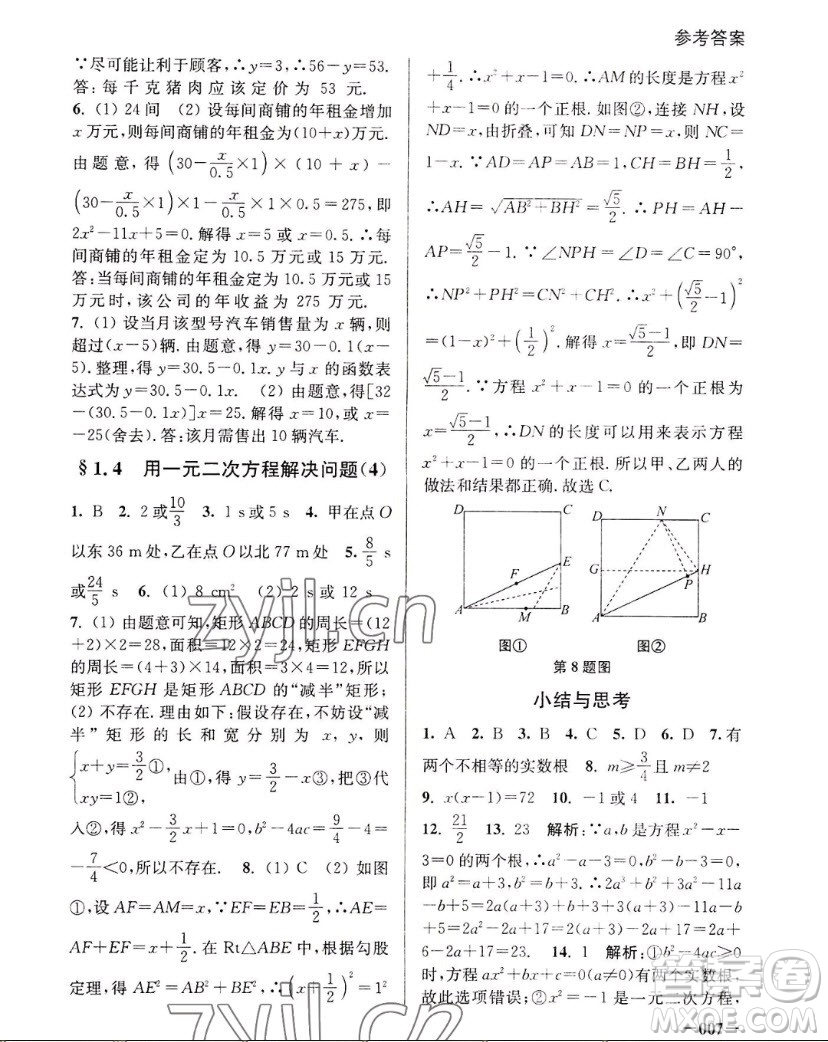 参考答案
∵尽可能让利于顾客,∴y=3,∴56-y=53.
答:每千克猪肉应该定价为 53 元.
6. (1) 24间 (2) 设每间商铺的年租金增加
x万元,则每间商铺的年租金为(10+x)万元.
由题意,得(30-x/0.5×1)×(10+x)-
(30-x/0.5×1)×1-x/0.5×1×0.5=275,即
2x²-11x+5=0.解得x=5或x=0.5.∴每
间商铺的年租金定为10.5万元或15万元.
答:当每间商铺的年租金定为10.5万元或15
万元时,该公司的年收益为275万元.
7. (1) 设当月该型号汽车销售量为x辆,则
超过(x-5)辆.由题意,得y=30-0.1(x-
5).整理,得y=30.5-0.1x.y与x的函数表
达式为y=30.5-0.1x. (2) 由题意,得[32
-(30.5-0.1x)]x=25.解得x=10,或x=
-25(舍去).答:该月需售出10辆汽车.
§1.4 用一元二次方程解决问题(4)
1. B 2. 2或10/3 3. 1 s或5 s 4. 甲在点O
以东36 m处,乙在点O以北77 m处 5. 8/5 s
或24/5 s 6. (1) 8 cm² (2) 2 s或12 s
7. (1) 由题意可知,矩形ABCD的周长=(12
+2)×2=28,面积=12×2=24,矩形EFGH
的周长=(4+3)×2=14,面积=3×4=12,所以
矩形EFGH是矩形ABCD的“减半”矩形;
(2) 不存在.理由如下:假设存在,不妨设“减
半”矩形的长和宽分别为x,y,则
{x+y=3/2①,
xy=1②,
由①,得y=3/2-x③,把③代
入②,得x²-3/2x+1=0,b²-4ac=9/4-4=
-7/4<0,所以不存在. 8. (1) C (2) 如图
①,设AF=AM=x,∵EF=EB=1/2,∴AE=
AF+EF=x+1/2.在Rt△ABE中,根据勾股
定理,得AE²=AB²+BE²,∴(x+1/2)²=1²
+1/4.∴x²+x-1=0.∴AM的长度是方程x²
+x-1=0的一个正根.如图②,连接NH,设
ND=x,由折叠,可知DN=NP=x,则NC=
1-x.∵AD=AP=AB=1,CH=BH=1/2,
∴AH=√(AB²+BH²)=√5/2.∴PH=AH-
AP=√5/2-1.∵∠NPH=∠D=∠C=90°,
∴NP²+PH²=CN²+CH².∴x²+(√5/2-1)²
=(1-x)²+(1/2)².解得x=(√5-1)/2,即DN=
(√5-1)/2.∵方程x²+x-1=0的一个正根为
x=(√5-1)/2,∴DN的长度可以用来表示方程
x²+x-1=0的一个正根.所以,甲、乙两人的
做法和结果都正确.故选C.
D C E F A M B
图①
D N C G H P A B
图②
第8题图
小结与思考
1. A 2. B 3. B 4. C 5. D 6. D 7. 有
两个不相等的实数根 8. m≥3/4且m≠2
9. x(x-1)=72 10. -1或4 11. -1
12. 21/2 13. 23 解析:∵a,b是方程x²-x-
3=0的两个根,∴a²-a-3=0,b²-b-3=0,
即a²=a+3,b²=b+3,∴2a³+b²+3a²-
11a-b+5=2a(a+3)+b+3+3(a+3)-
11a-b+5=2a²-2a+17=2(a+3)-
2a+17=23. 14. 1 解析:①b²-4ac≥0
时,方程ax²+bx+c=0有两个实数根,
故此选项错误;②x²=-1是一元二次方程,
—007—
zyjl.cn
zyjl.cn
答案圈